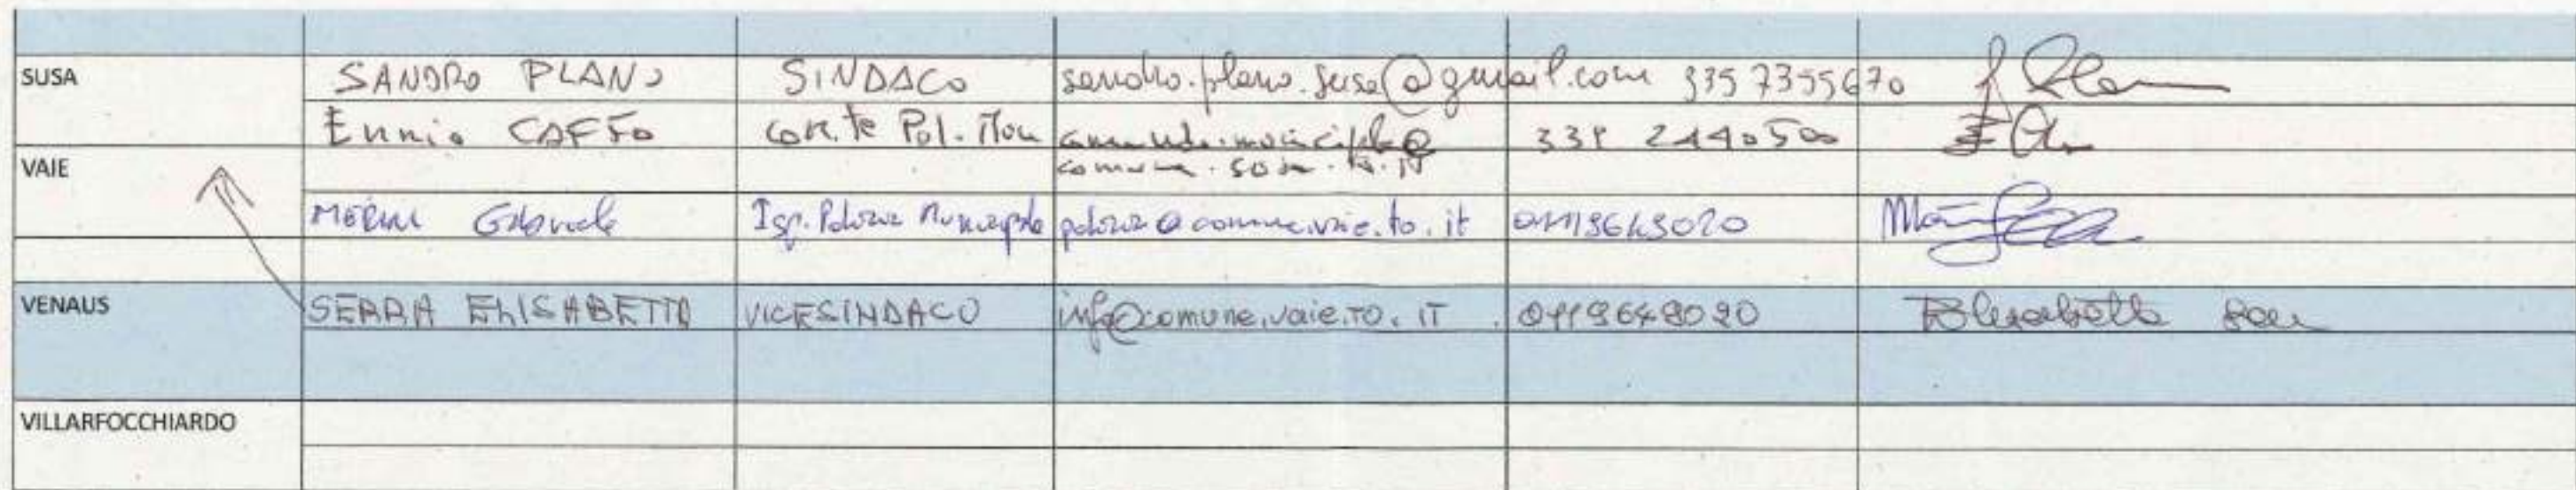 SUSA SANDRO PLANO SINDACO sandro.plano.susa@gmail.com 335 7355670
Ennio CAFFO Com.te Pol. Mun 2440500
comune.susa.to.it
VAIE
Gabriele Isp. Polizia Municipale polizia@comune.vaie.to.it
VENAUS SERRA ELISABETTA VICESINDACO info@comune.vaie.TO.IT 0119649020 Elisabetta
VILLARFOCCHIARDO